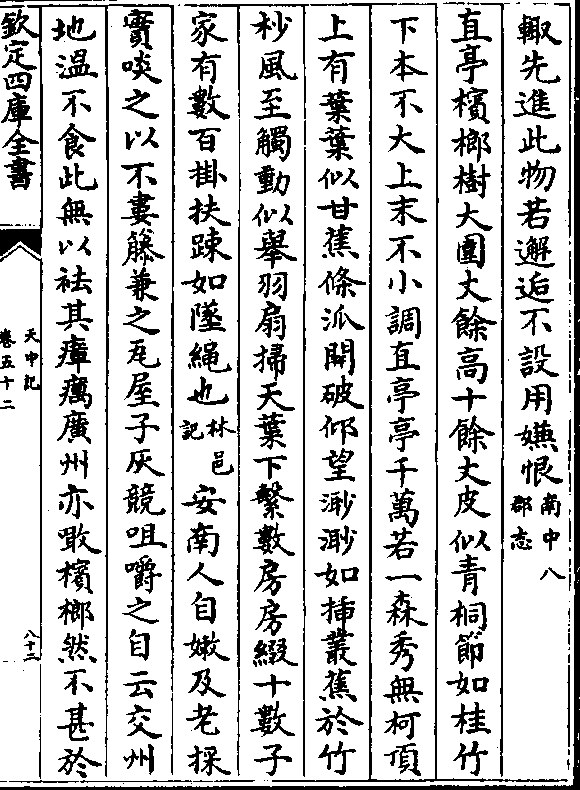 輙先進此物若邂逅不設用嫌恨南中八郡志
直亭檳榔樹大圍丈餘高十餘丈皮似青桐節如桂竹
下本不大上末不小調直亭亭千萬若一森秀無柯頂
上有葉葉似甘蕉條派開破仰望渺渺如挿叢蕉於竹
杪風至觸動似舉羽扇掃天葉下繫數房房綴十數子
家有數百掛扶踈如墜繩也林邑記安南人自嫩及老採
實啖之以不婁籐兼之瓦屋子灰競咀嚼之自云交州
地溫不食此無以袪其瘴癘廣州亦噉檳榔然不甚於
欽定四庫全書
天中記
卷五十二
八十二